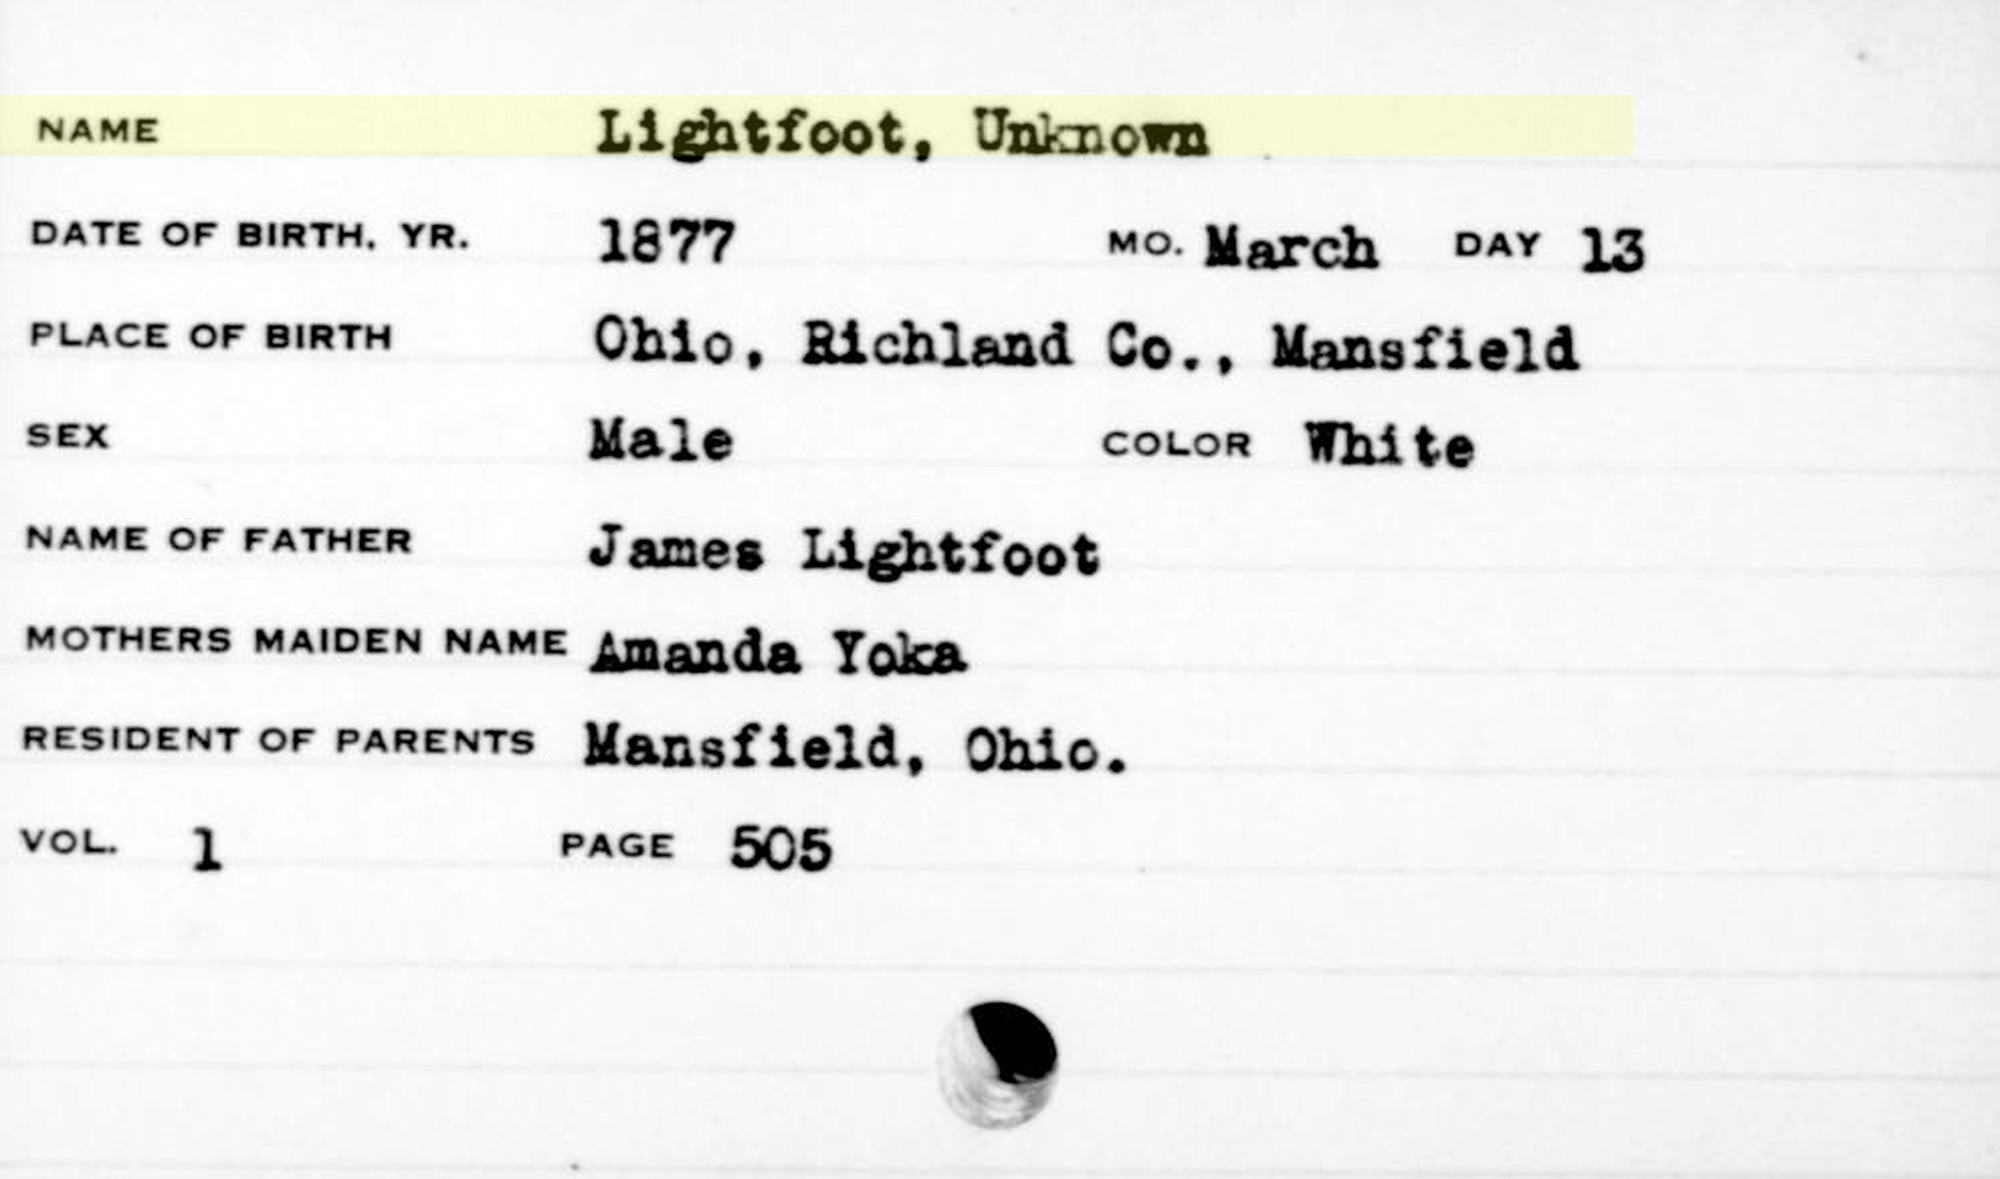 NAME Lightfoot, Unknown
DATE OF BIRTH. YR. 1877 MO. March DAY 13
PLACE OF BIRTH Ohio, Richland Co., Mansfield
SEX Male COLOR White
NAME OF FATHER James Lightfoot
MOTHERS MAIDEN NAME Amanda Yoka
RESIDENT OF PARENTS Mansfield, Ohio.
VOL. 1 PAGE 505